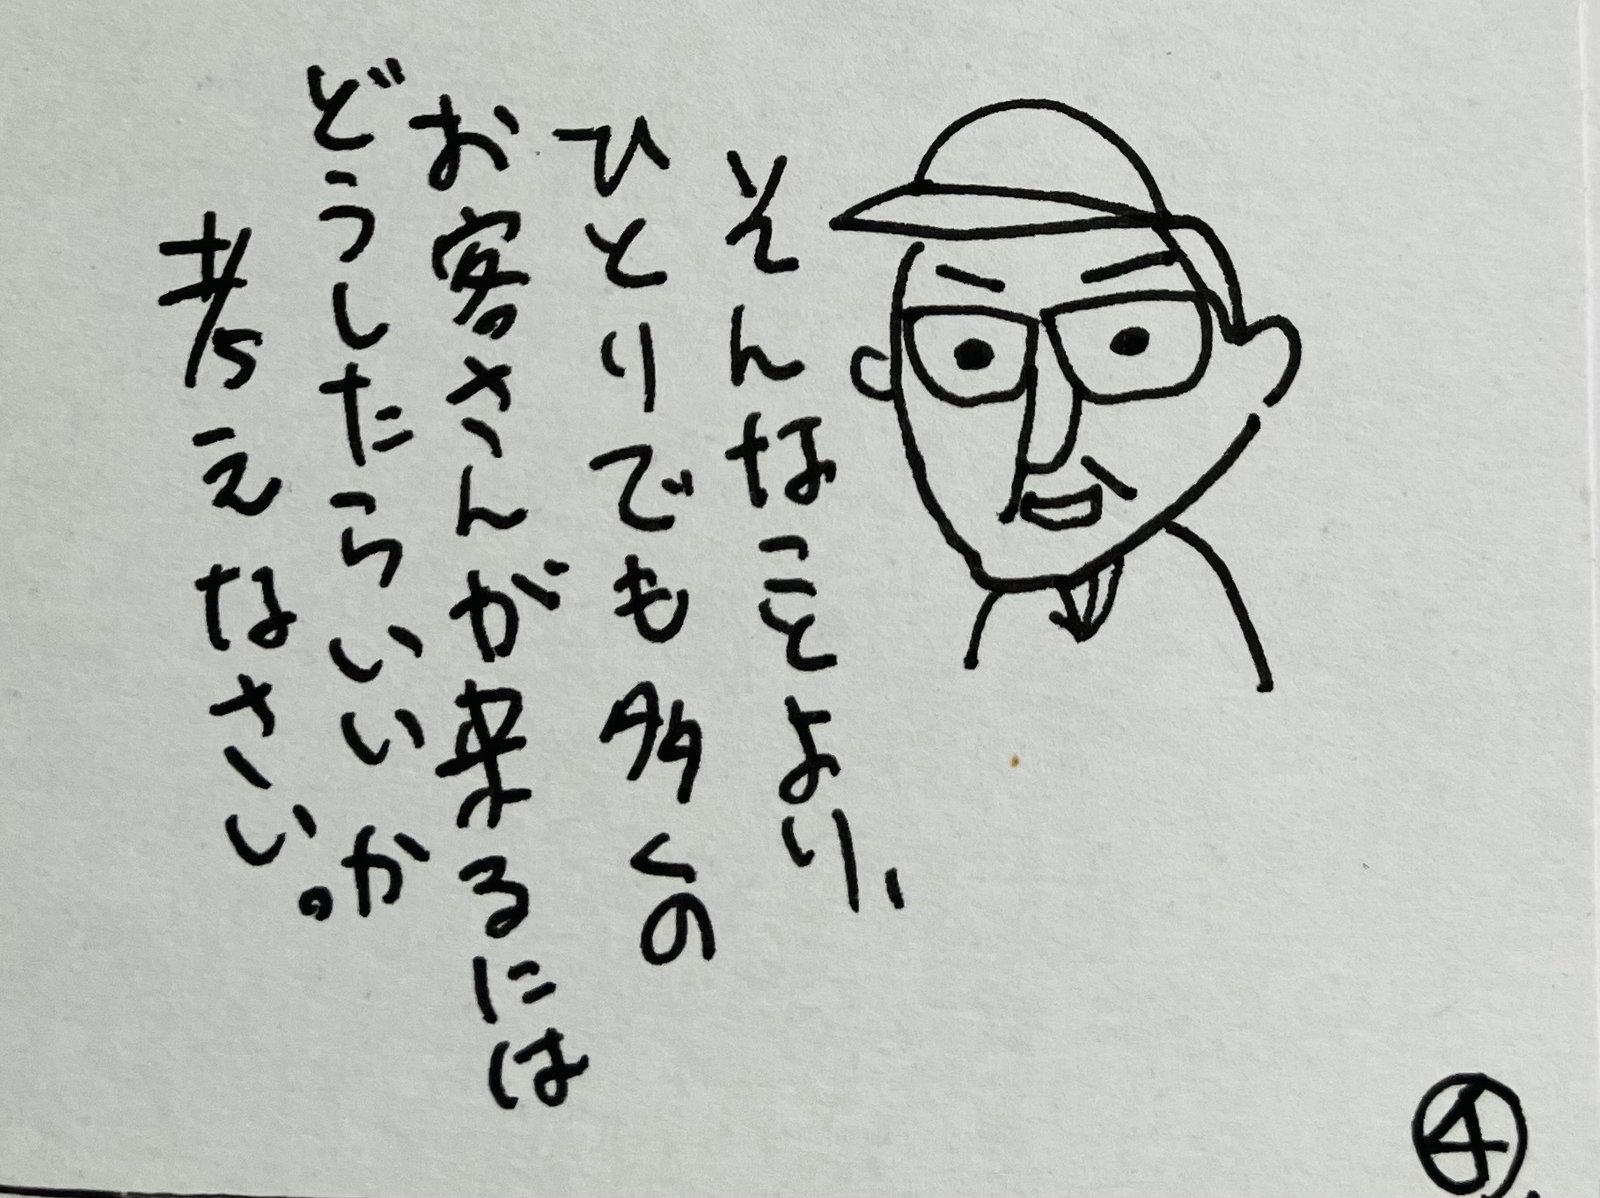 そんなことより、
ひとりでも多くの
お客さんが来るには
どうしたらいいか
考えなさい。
④